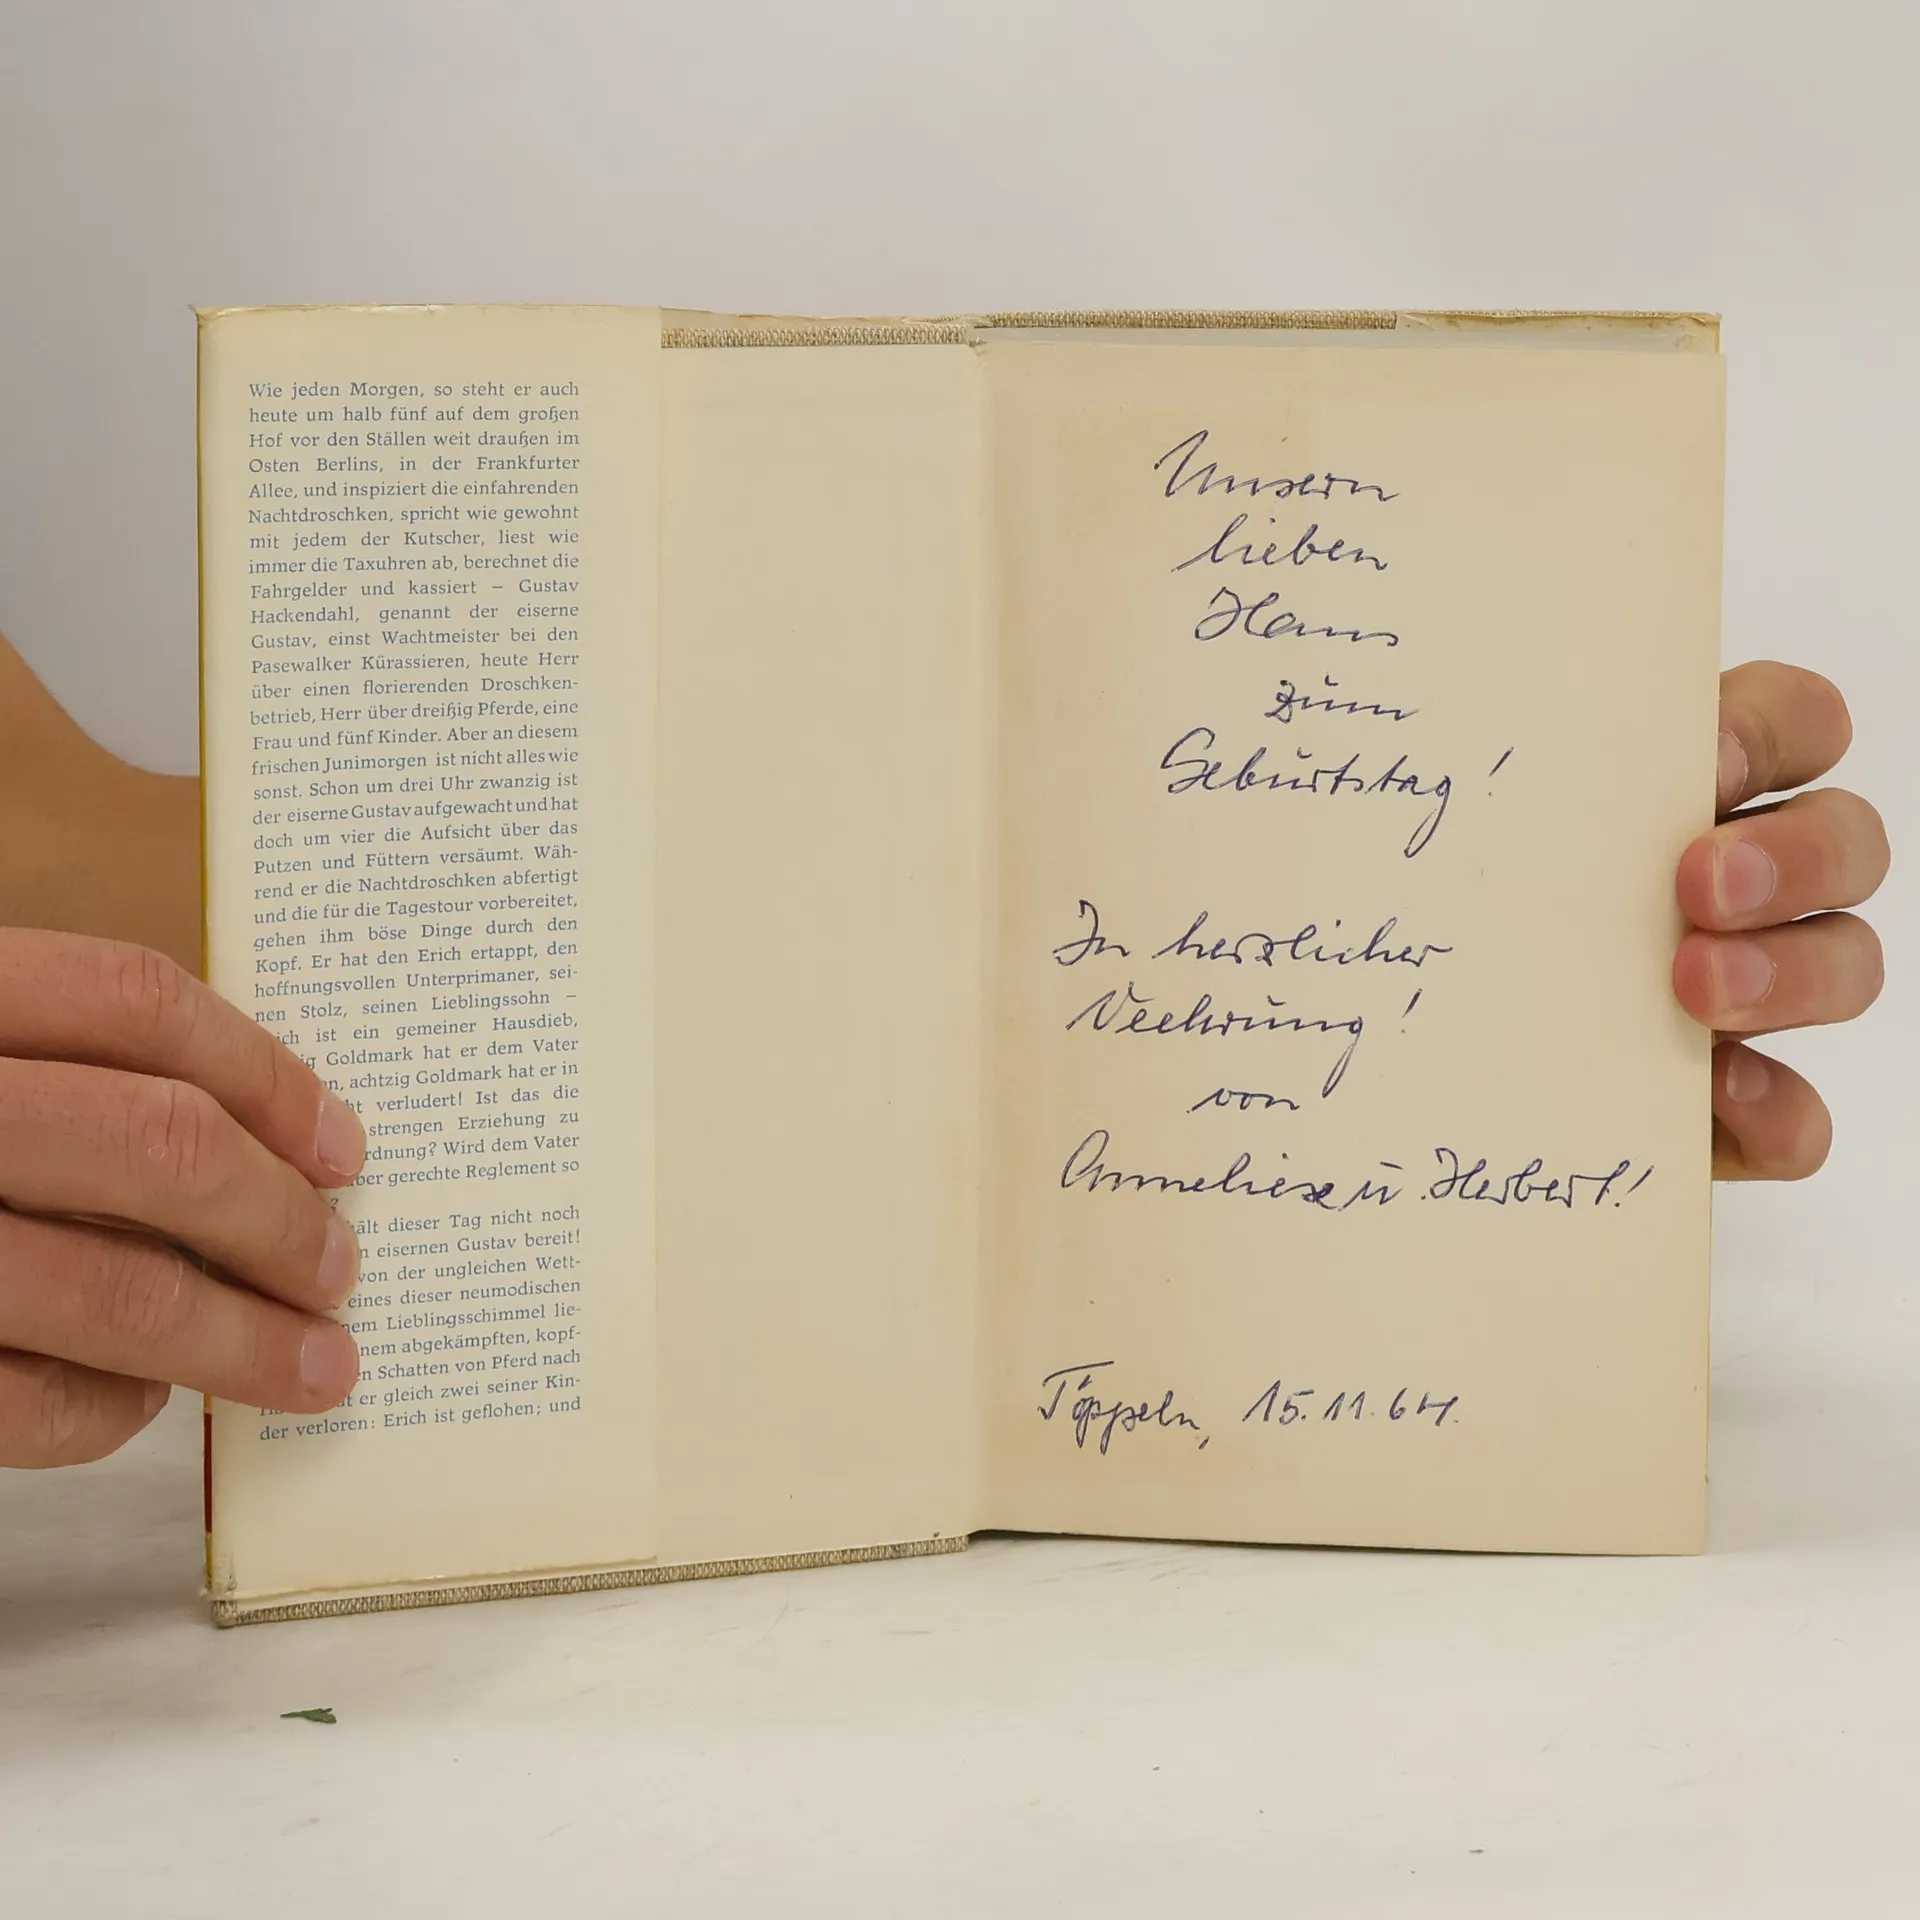 Wie jeden Morgen, so steht er auch
heute um halb fünf auf dem großen
Hof vor den Ställen weit draußen im
Osten Berlins, in der Frankfurter
Allee, und inspiziert die einfahrenden
Nachtdroschken, spricht wie gewohnt
mit jedem der Kutscher, liest wie
immer die Taxuhren ab, berechnet die
Fahrgelder und kassiert – Gustav
Hackendahl, genannt der eiserne
Gustav, einst Wachtmeister bei den
Pasewalker Kürassieren, heute Herr
über einen florierenden Droschken-
betrieb, Herr über dreißig Pferde, eine
Frau und fünf Kinder. Aber an diesem
frischen Junimorgen ist nicht alles wie
sonst. Schon um drei Uhr zwanzig ist
der eiserne Gustav aufgewacht und hat
doch um vier die Aufsicht über das
Putzen und Füttern versäumt. Wäh-
rend er die Nachtdroschken abfertigt
und die für die Tagestour vorbereitet,
gehen ihm böse Dinge durch den
Kopf. Er hat den Erich ertappt, den
hoffnungsvollen Unterprimaner, sei-
nen Stolz, seinen Lieblingssohn –
ist ein gemeiner Hausdieb,
Goldmark hat er dem Vater
achtzig Goldmark hat er in
verludert! Ist das die
strengen Erziehung zu
Wird dem Vater
gerechte Reglement so
dieser Tag nicht noch
eisernen Gustav bereit!
von der ungleichen Wett-
eines dieser neumodischen
Lieblingsschimmel lie-
abgekämpften, kopf-
Schatten von Pferd nach
er gleich zwei seiner Kin-
der verloren: Erich ist geflohen; und
Unsern
lieben
Hans
zum
Geburtstag!
In herzlicher
Verehrung!
von
Anneliese u. Herbert!
Töppeln, 15.11.64.